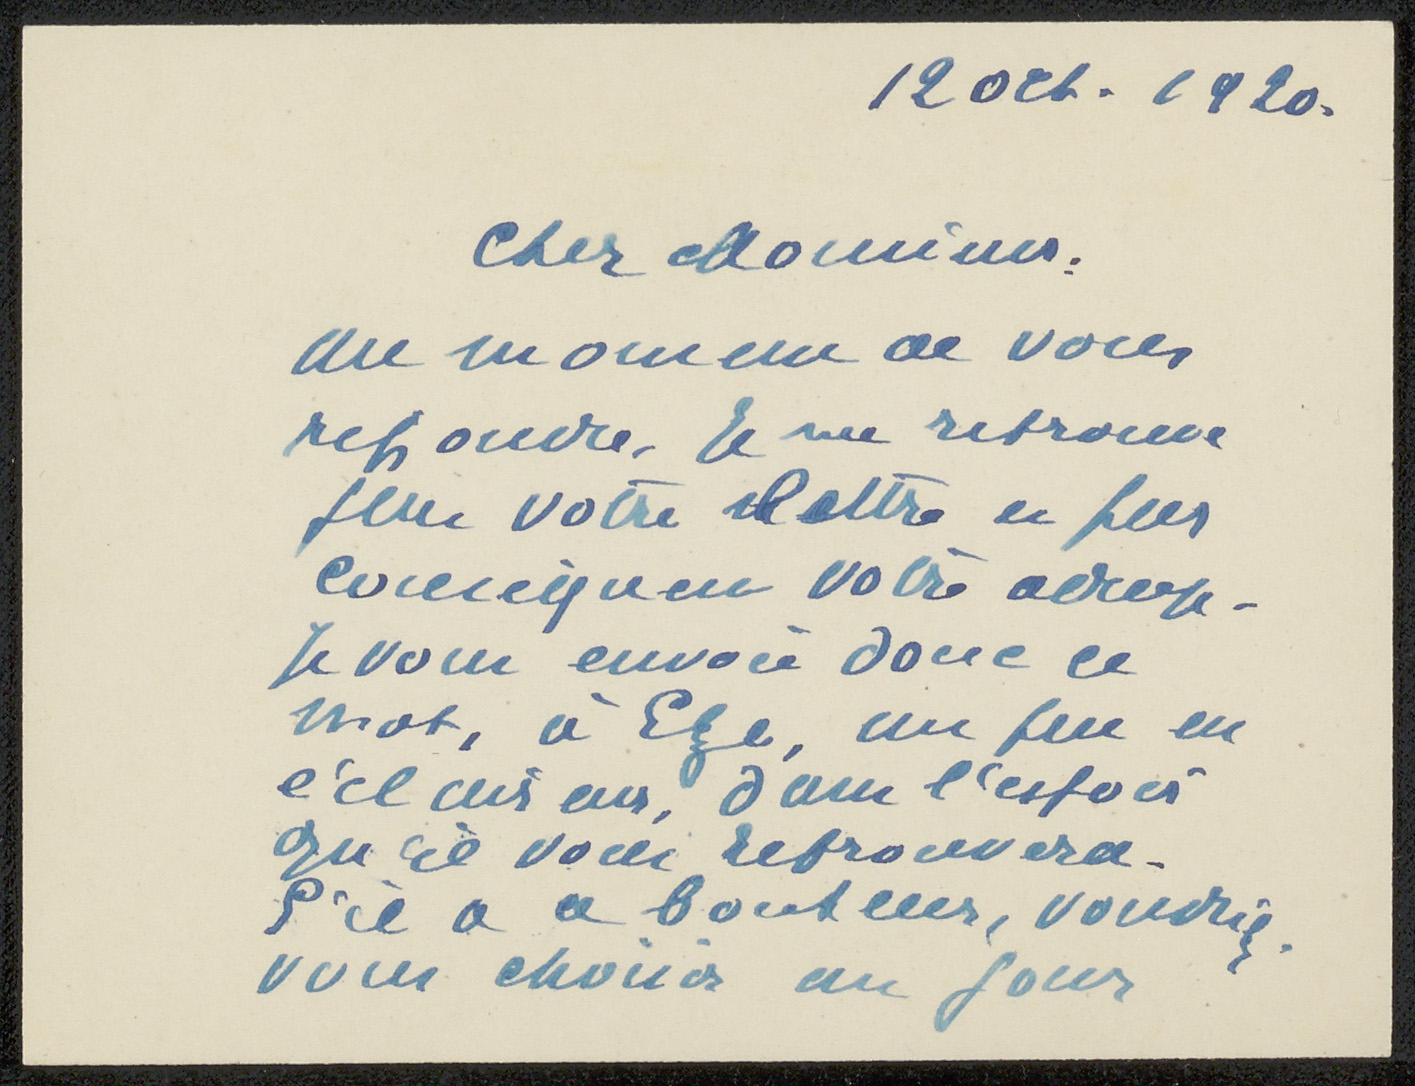 12 oct. 1920.
Cher Monsieur.
Au moment de vous
repondre, Je ne retrouve
plus votre lettre ni par
consequent votre adresse -
Je vous envoie donc ce
mot, à Eze, un peu en
éclaireur, dans l'espoir
qu'il vous retrouvera -
S'il a ce bonheur, voudriez-
vous choisir un jour